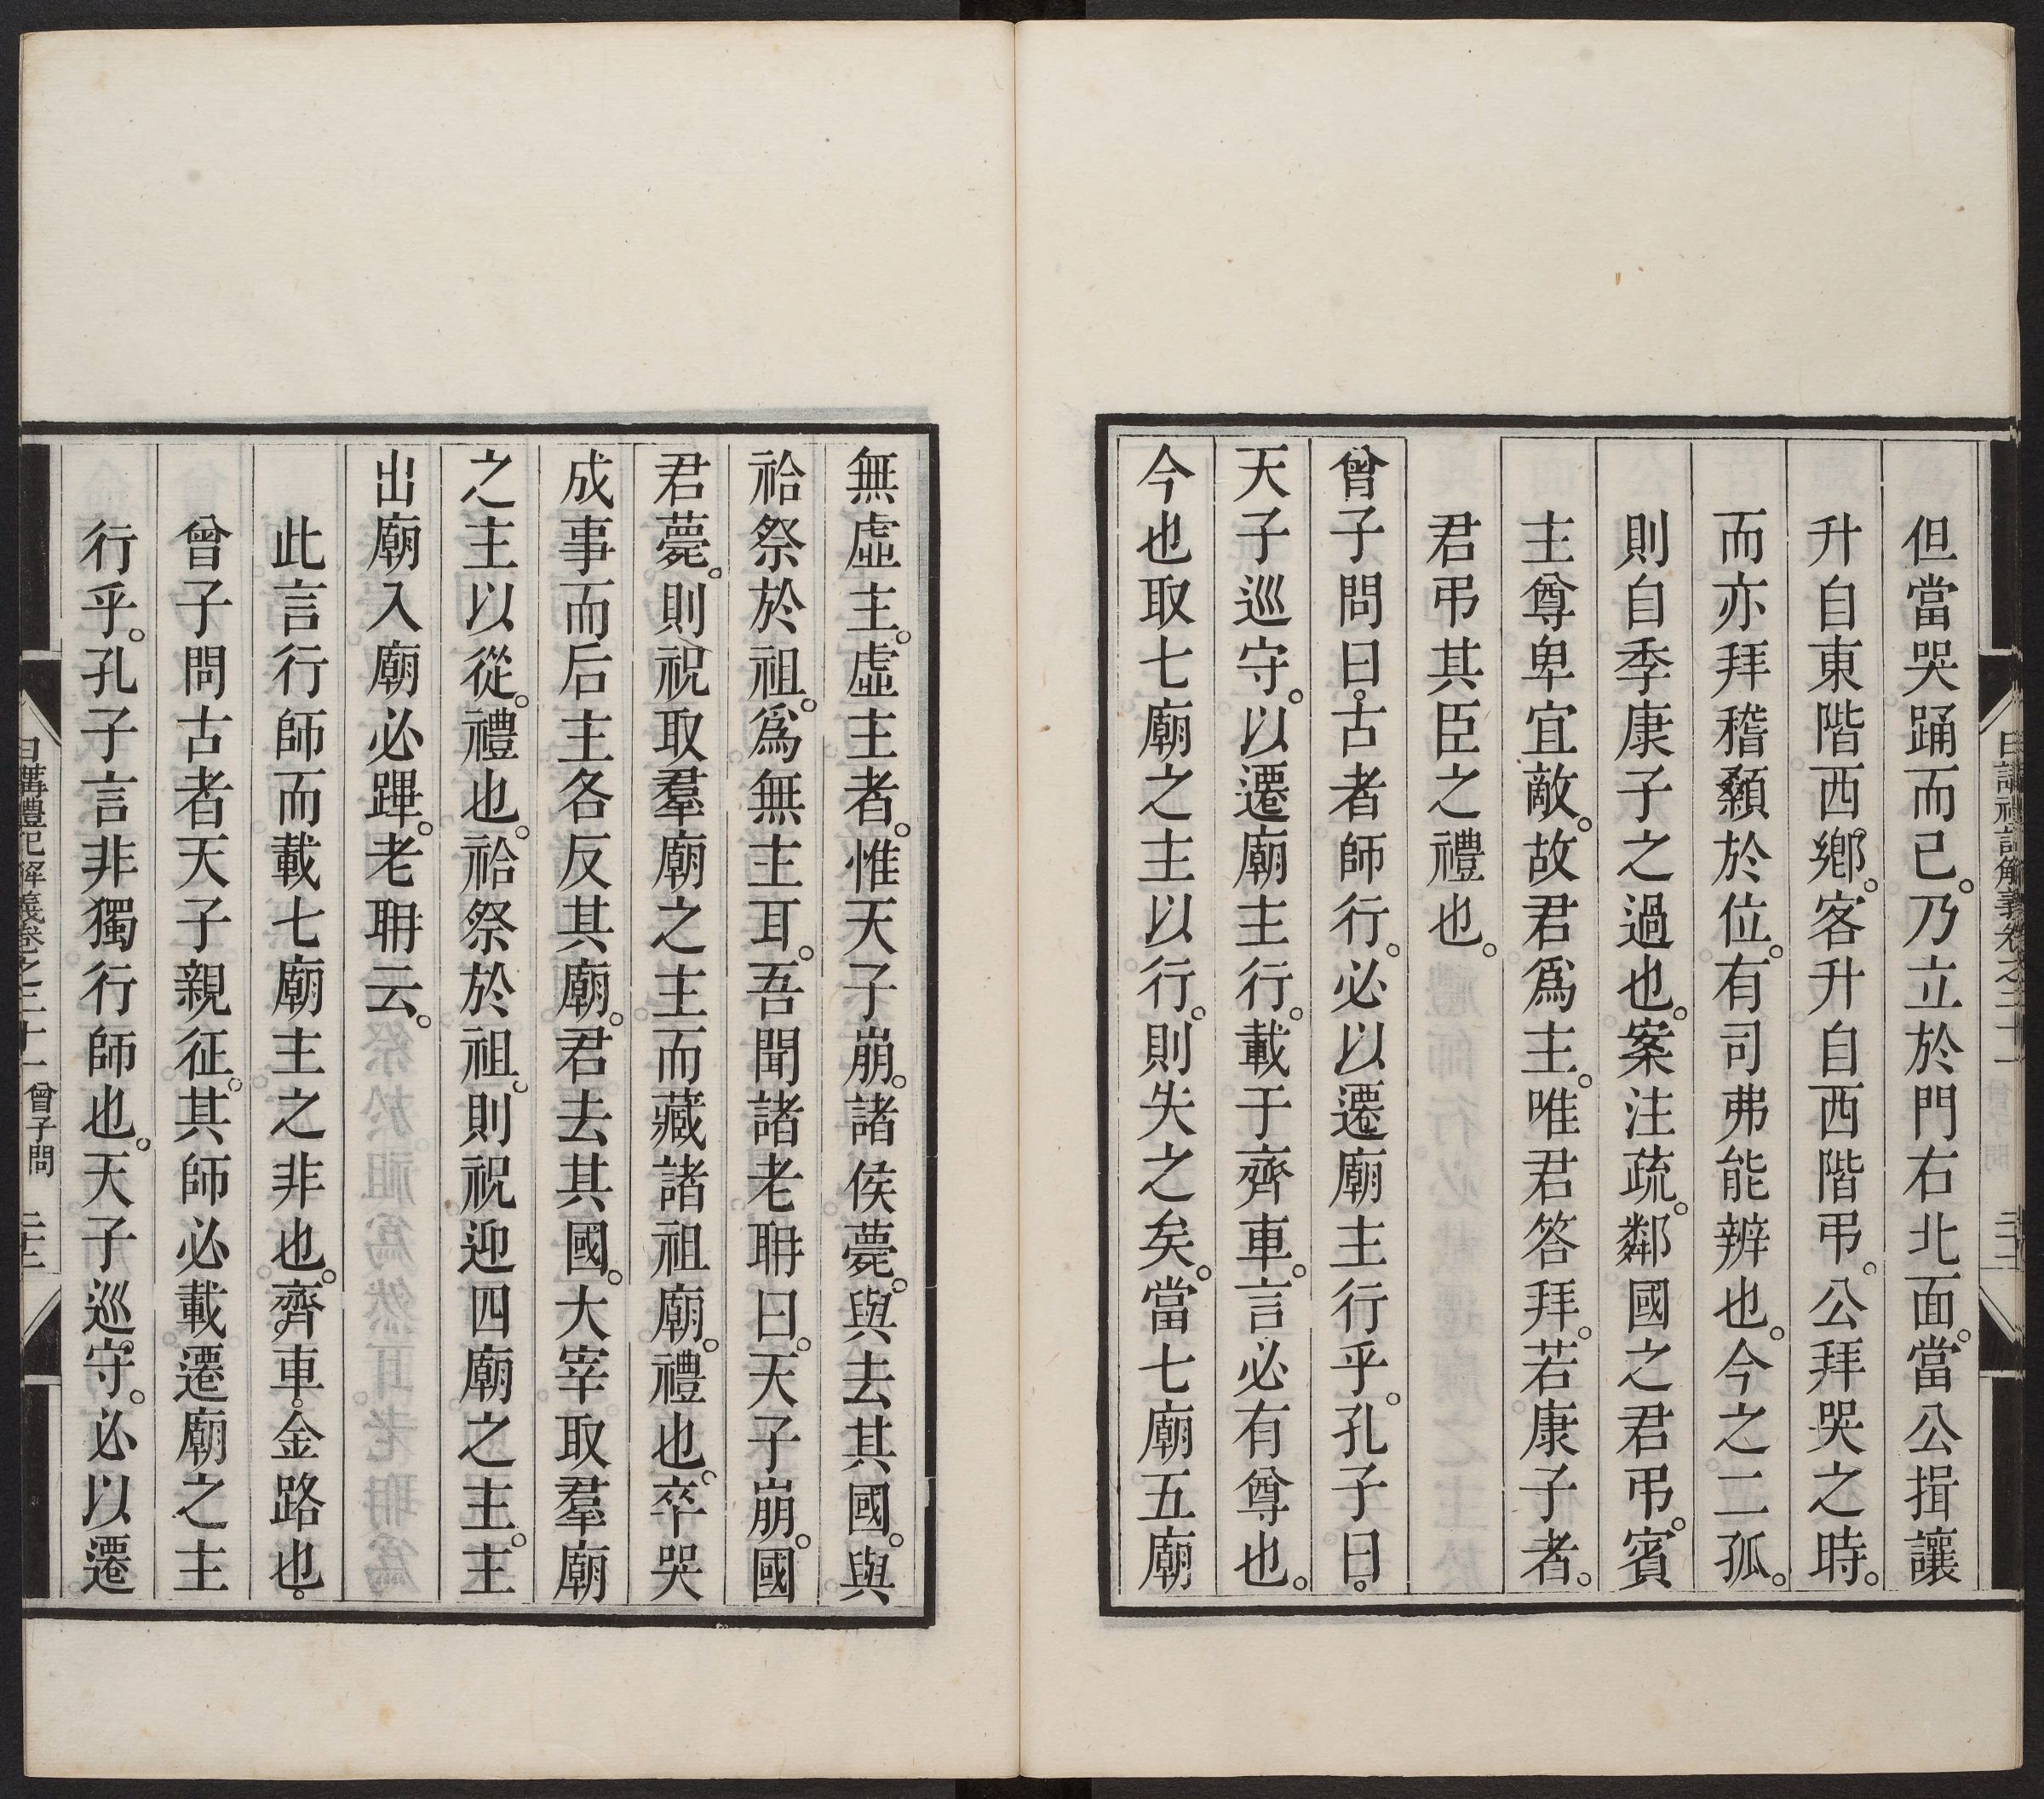 但當哭踊而已。乃立於門右北面。當公揖讓
升自東階西鄉。客升自西階弔。公拜哭之時。
而亦拜稽顙於位。有司弗能辨也。今之二孤。
則自季康子之過也。案注疏。鄰國之君弔。賓
主尊卑宜敵。故君爲主。唯君答拜。若康子者。
君弔其臣之禮也。
曾子問曰。古者師行。必以遷廟主行乎。孔子曰。
天子巡守。以遷廟主行。載于齊車。言必有尊也。
今也取七廟之主以行。則失之矣。當七廟五廟
無虛主。虛主者。惟天子崩。諸侯薨。與去其國。與
祫祭於祖。爲無主耳。吾聞諸老聃曰。天子崩。國
君薨。則祝取羣廟之主而藏諸祖廟。禮也。卒哭
成事而后主各反其廟。君去其國。大宰取羣廟
之主以從。禮也。祫祭於祖。則祝迎四廟之主。主
出廟入廟必蹕。老聃云。
此言行師而載七廟主之非也。齊車。金路也。
曾子問古者天子親征。其師必載遷廟之主
行乎。孔子言非獨行師也。天子巡守。必以遷
日講禮記解義卷之二十一 曾子問 二十二